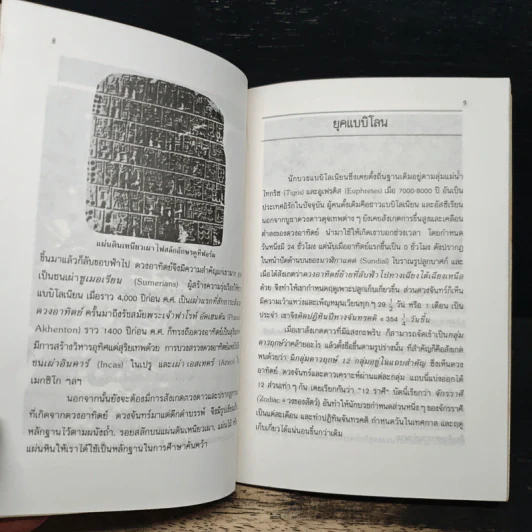 ๘
แผ่นดินเหนียวเผาไฟสลักอักษรคูนิฟอร์ม
ขึ้นมาแล้วก็ลับขอบฟ้าไป ดวงอาทิตย์จึงมีความสำคัญมาก
เป็นชนเผ่าซูเมอเรียน (Sumerians) ผู้สร้างความรุ่งเรือง
แบบิโลเนียน เมื่อราว 4,000 ปีก่อน ค.ศ. เป็นเผ่าแรกที่สักการะ
ดวงอาทิตย์ ครั้นมาถึงรัชสมัยพระเจ้าฟาโรห์ อัคเฮนตัน (Pharaoh
Akhenton) ราว 1400 ปีก่อน ค.ศ. ก็ทรงถือดวงอาทิตย์เป็น
มีการสร้างวิหารอุทิศแด่สุริยเทพด้วย การบวงสรวงดวงอาทิตย์
เป็นชนเผ่าอินคาร์ (Incas) ในเปรู และเผ่า เอสเทร์
เมกซิโก ฯลฯ
นอกจากนั้นยังคงมีการสังเกตดวงดาวและปรากฏการณ์
ที่เกิดจากดวงอาทิตย์ ดวงจันทร์มาแต่ดึกดำบรรพ์ จึงมี
หลักฐานไว้ตามผนังถ้ำ, รอยสลักบนแผ่นดินเหนียวเผา,
แผ่นหินให้เราได้ใช้เป็นหลักฐานในการศึกษาค้นคว้า
ยุคแบบิโลน
นักบวชแบบิโลเนียนซึ่งเคยตั้งถิ่นฐานเดิมอยู่ตามลุ่มแม่น้ำ
ไทกริช (Tigris) และยูเฟรติส (Euphretes) เมื่อ 7000-8000 ปี อันเป็น
ประเทศอิรักในปัจจุบัน ผู้คนดั้งเดิมคือชาวแบบิโลเนียน และอัสซีเรียน
นอกจากบูชาดวงดาวดุจเทพต่าง ๆ ยังเคยสังเกตการขึ้นสูงและเคลื่อน
ต่ำลงของดวงอาทิตย์ นำมาใช้ให้เกิดเงาบอกช่วงเวลา โดยกำหนด
วันหนึ่งมี 24 ชั่วโมง แต่นับเมื่ออาทิตย์แรกขึ้นเป็น 0 ชั่วโมง ดังปรากฏ
ในหน้าปัดด้านบนของนาฬิกาแดด (Sundial) โบราณรูปลูกบาศก์ และ
เมื่อได้สังเกตว่าดวงอาทิตย์ย้ายที่ลับฟ้าไปทางเฉียงใต้เฉียงเหนือ
ด้วย จึงทำให้เขากำหนดฤดูเพาะปลูกเก็บเกี่ยวขึ้น ส่วนดวงจันทร์ก็เห็น
มีความเว้าแหว่งและเพ็ญหมุนเวียนทุกๆ 29 ½ วัน หรือ 1 เดือน เป็น
ประจำ เขาจึงคิดปฏิทินปีทางจันทรคติ = 354 ¼ วันขึ้น
เมื่อเขาสังเกตดาวที่มีแสงกะพริบ ก็สามารถจัดเข้าเป็นกลุ่ม
ดาวฤกษ์ว่าคล้ายอะไร ซึ่งตั้งชื่อขึ้นตามรูปร่างนั้น ที่สำคัญก็คือสังเกต
พบด้วยว่า มีกลุ่มดาวฤกษ์ 12 กลุ่มอยู่ในแถบสำคัญ ซึ่งเห็นดวง
อาทิตย์ ดวงจันทร์และดาวเคราะห์ผ่านแต่ละกลุ่ม แถบนี้แบ่งออกได้
12 ส่วนเท่าๆ กัน เคยเรียกกันว่า "12 ราศี" บัดนี้เรียกว่า จักรราศี
(Zodiac = วงของสัตว์) อันทำให้นักบวชกำหนดส่วนหนึ่ง ๆ ของจักรราศี
เป็นแต่ละเดือน และทำปฏิทินจันทรคติ กำหนดวันในเทศกาล และฤดู
เก็บเกี่ยวได้แน่นอนขึ้นกว่าเดิม